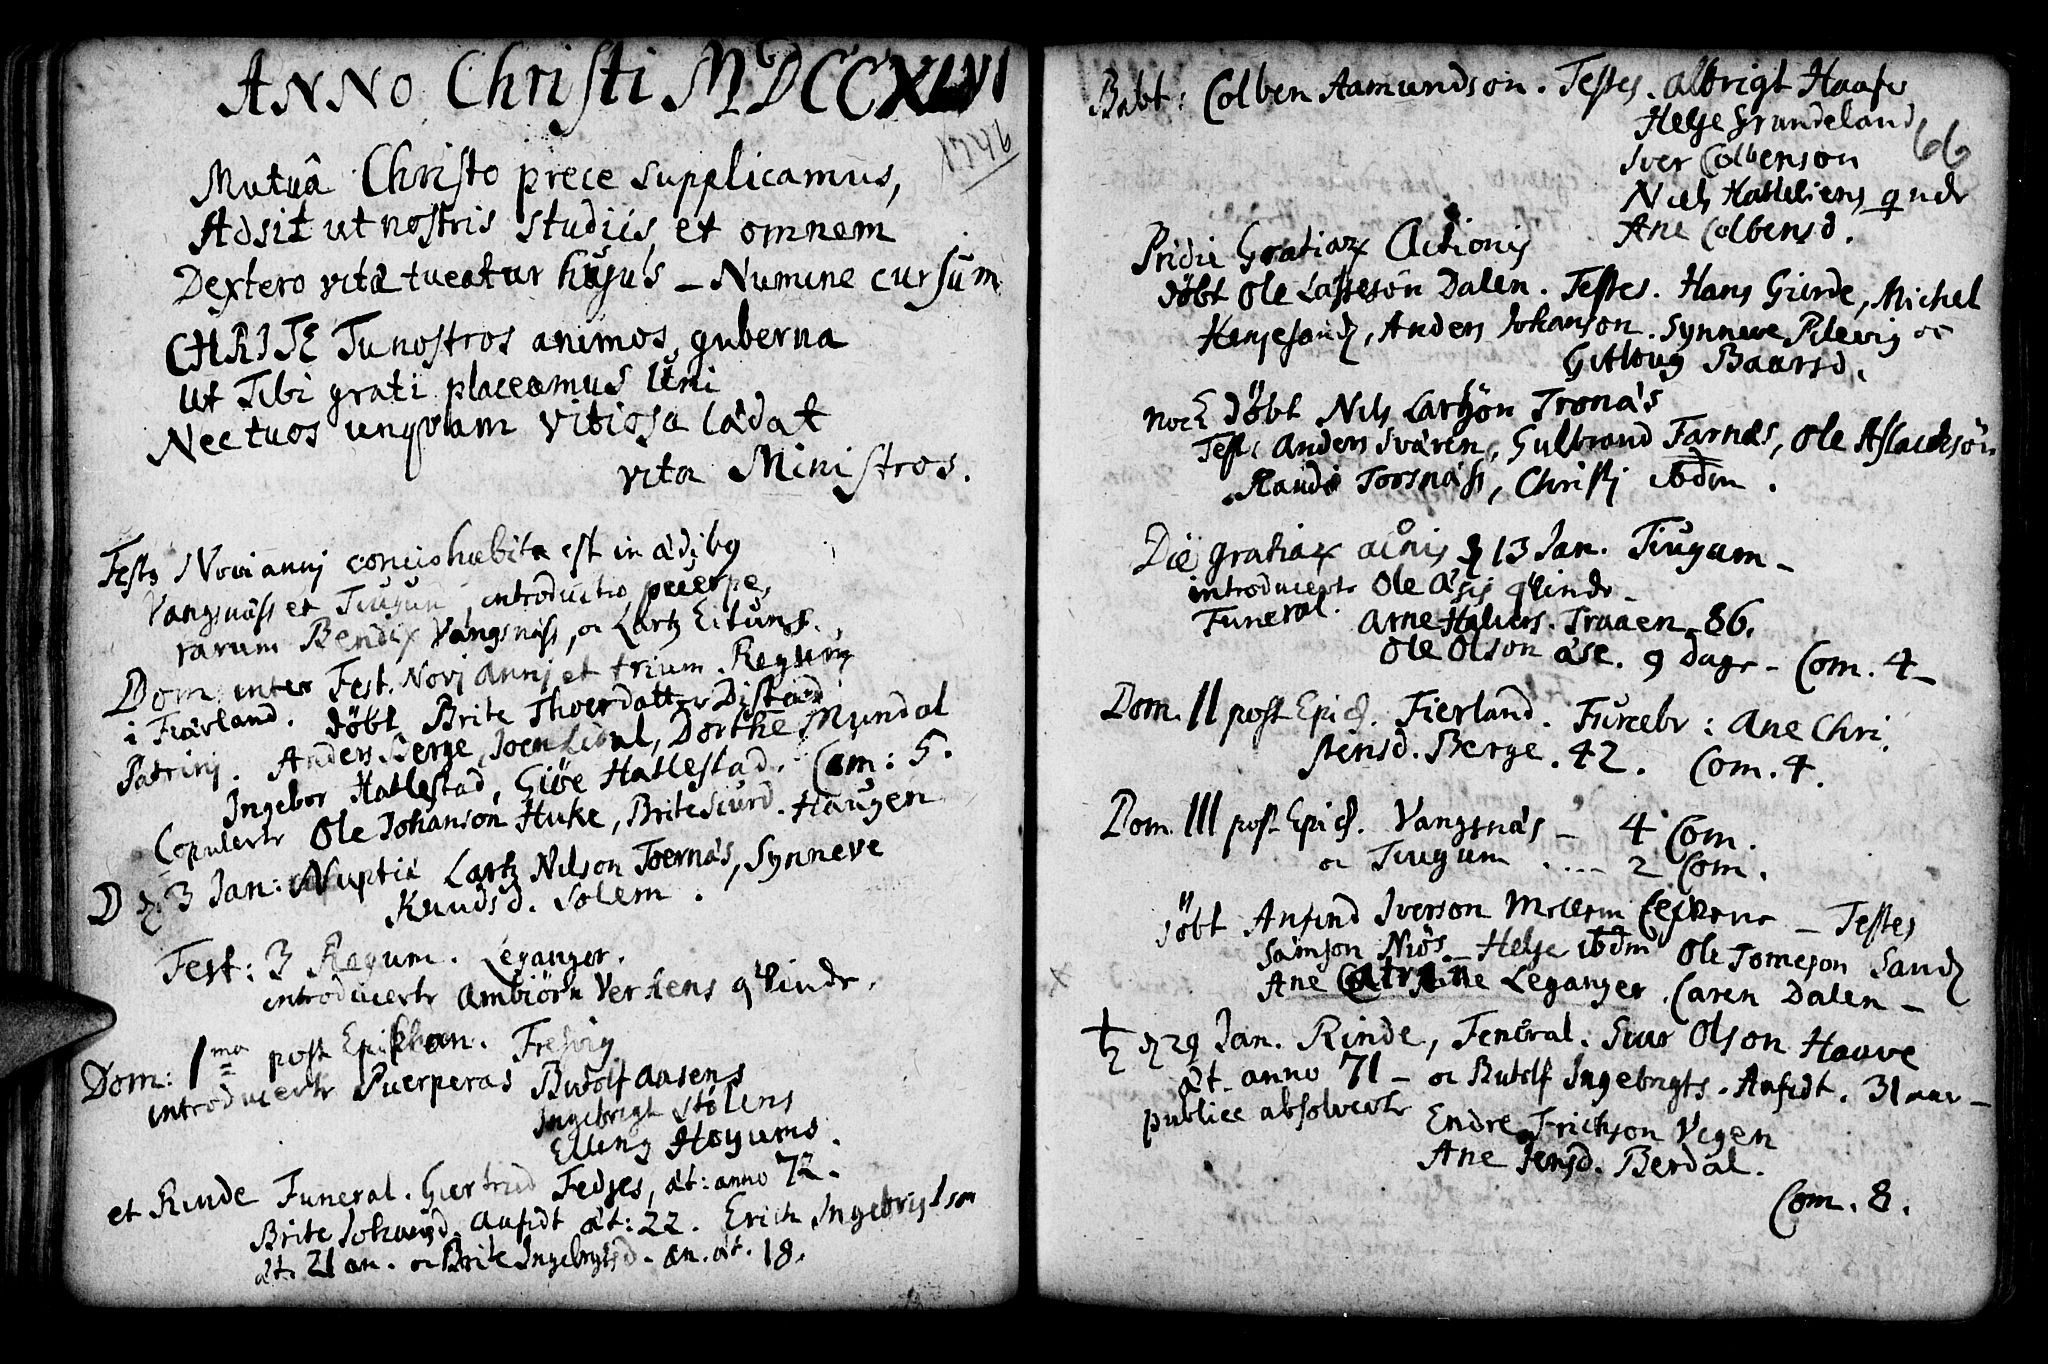 ANNO Christi MDCCXLVI
1746
Mutuâ Christo prece supplicamus,
Adsit ut nostris studiis et omnem
Dextero vitæ tueatur hujus – Numine cursum
CHRISTE Tu nostros animos guberna
Ut Tibi grati placeamus Uni
Nec tuos unqvam vitiosa lædat
vita Ministros.
Festo Novi annj concio habita est in ædibg
Vangsnæss et Tiugum, introductio puerpe,
rarum Bendix Vangsnæss, oc Lartz Eituns.
Dom. inter Fest. Novj Annj et trium Regum
i Fiærland. döbt Brite Thoerdatter Distad
Patrinj. Anders Berge, Joen Lidal, Dorthe Mundal
Ingebor Hatlestad, Giöe Hatlestad. Com: 5.
Copulertr Ole Johanson Huke, Brite Siurd. Haugen
D 3 Jan: Nuptiæ Lartz Nilson Toernæs, Synneve
Knudsd. Solem.
Fest: 3 Regum. Leganger.
introducertr Ambiörn Verkens qvinde.
Dom: 1ma post Epiphan. Fresvig
introducertr Puerperas Butolf Aasens
Ingebrigt Stölens
Elling Höyums.
et Rinde Funeral. Giertrud Fedjes, æt: anno 72.
Brite Johansd. Anfidt æt: 22. Erich Ingebrigtson
æt. 21 an. oc Brite Ingebrigtsd. an. æt. 18.
Babt: Colben Aamundson. Testes. Albrigt Haafe
Helje Grundeland
66
Iver Colbenson
Niels Hatleliens qvde
Ane Colbensd.
Pridie Gratiar Actionis
döbt Ole Lasseson Dalen. Testes. Hans Gierde, Michel
Henjesand, Anders Johanson. Synneve Pilevig oc
Gitloug Baarsd.
noch döbt Nils Larssön Tronæs
Test: Anders Sværen, Gulbrand Farnæs, Ole Aslacksön
Randi Torsnæss, Christj ibdm.
Die gratiar acnis 13 Jan. Tiugum –
introducertr Ole Aasis qvinde –
Funeral. Arne Halvors. Traaen – 86.
Ole Olson Ase. 9 dage – Com. 4 –
Dom. II post Epiph. Fierland. Funebr: Ane Chri,
stensd. Berge. 42. Com. 4.
Dom. III post Epiph. Vangsnæs – 4 Com.
oc Tiugum .... 2 Com.
döbt Anfind Iverson – Testes
Samson Niös – Helje ibdm Ole Tomeson Sand
Ane Catrine Leganger. Caren Dalen –
29 Jan. Rinde, Feneral. Siur Olson Haave
æt. anno 71 – oc Butolf Ingebrigts. Anfidt. 31 aar –
publice absolvertr Endre Frichson Vegen
Ane Jensd. Berdal.
Com. 8.